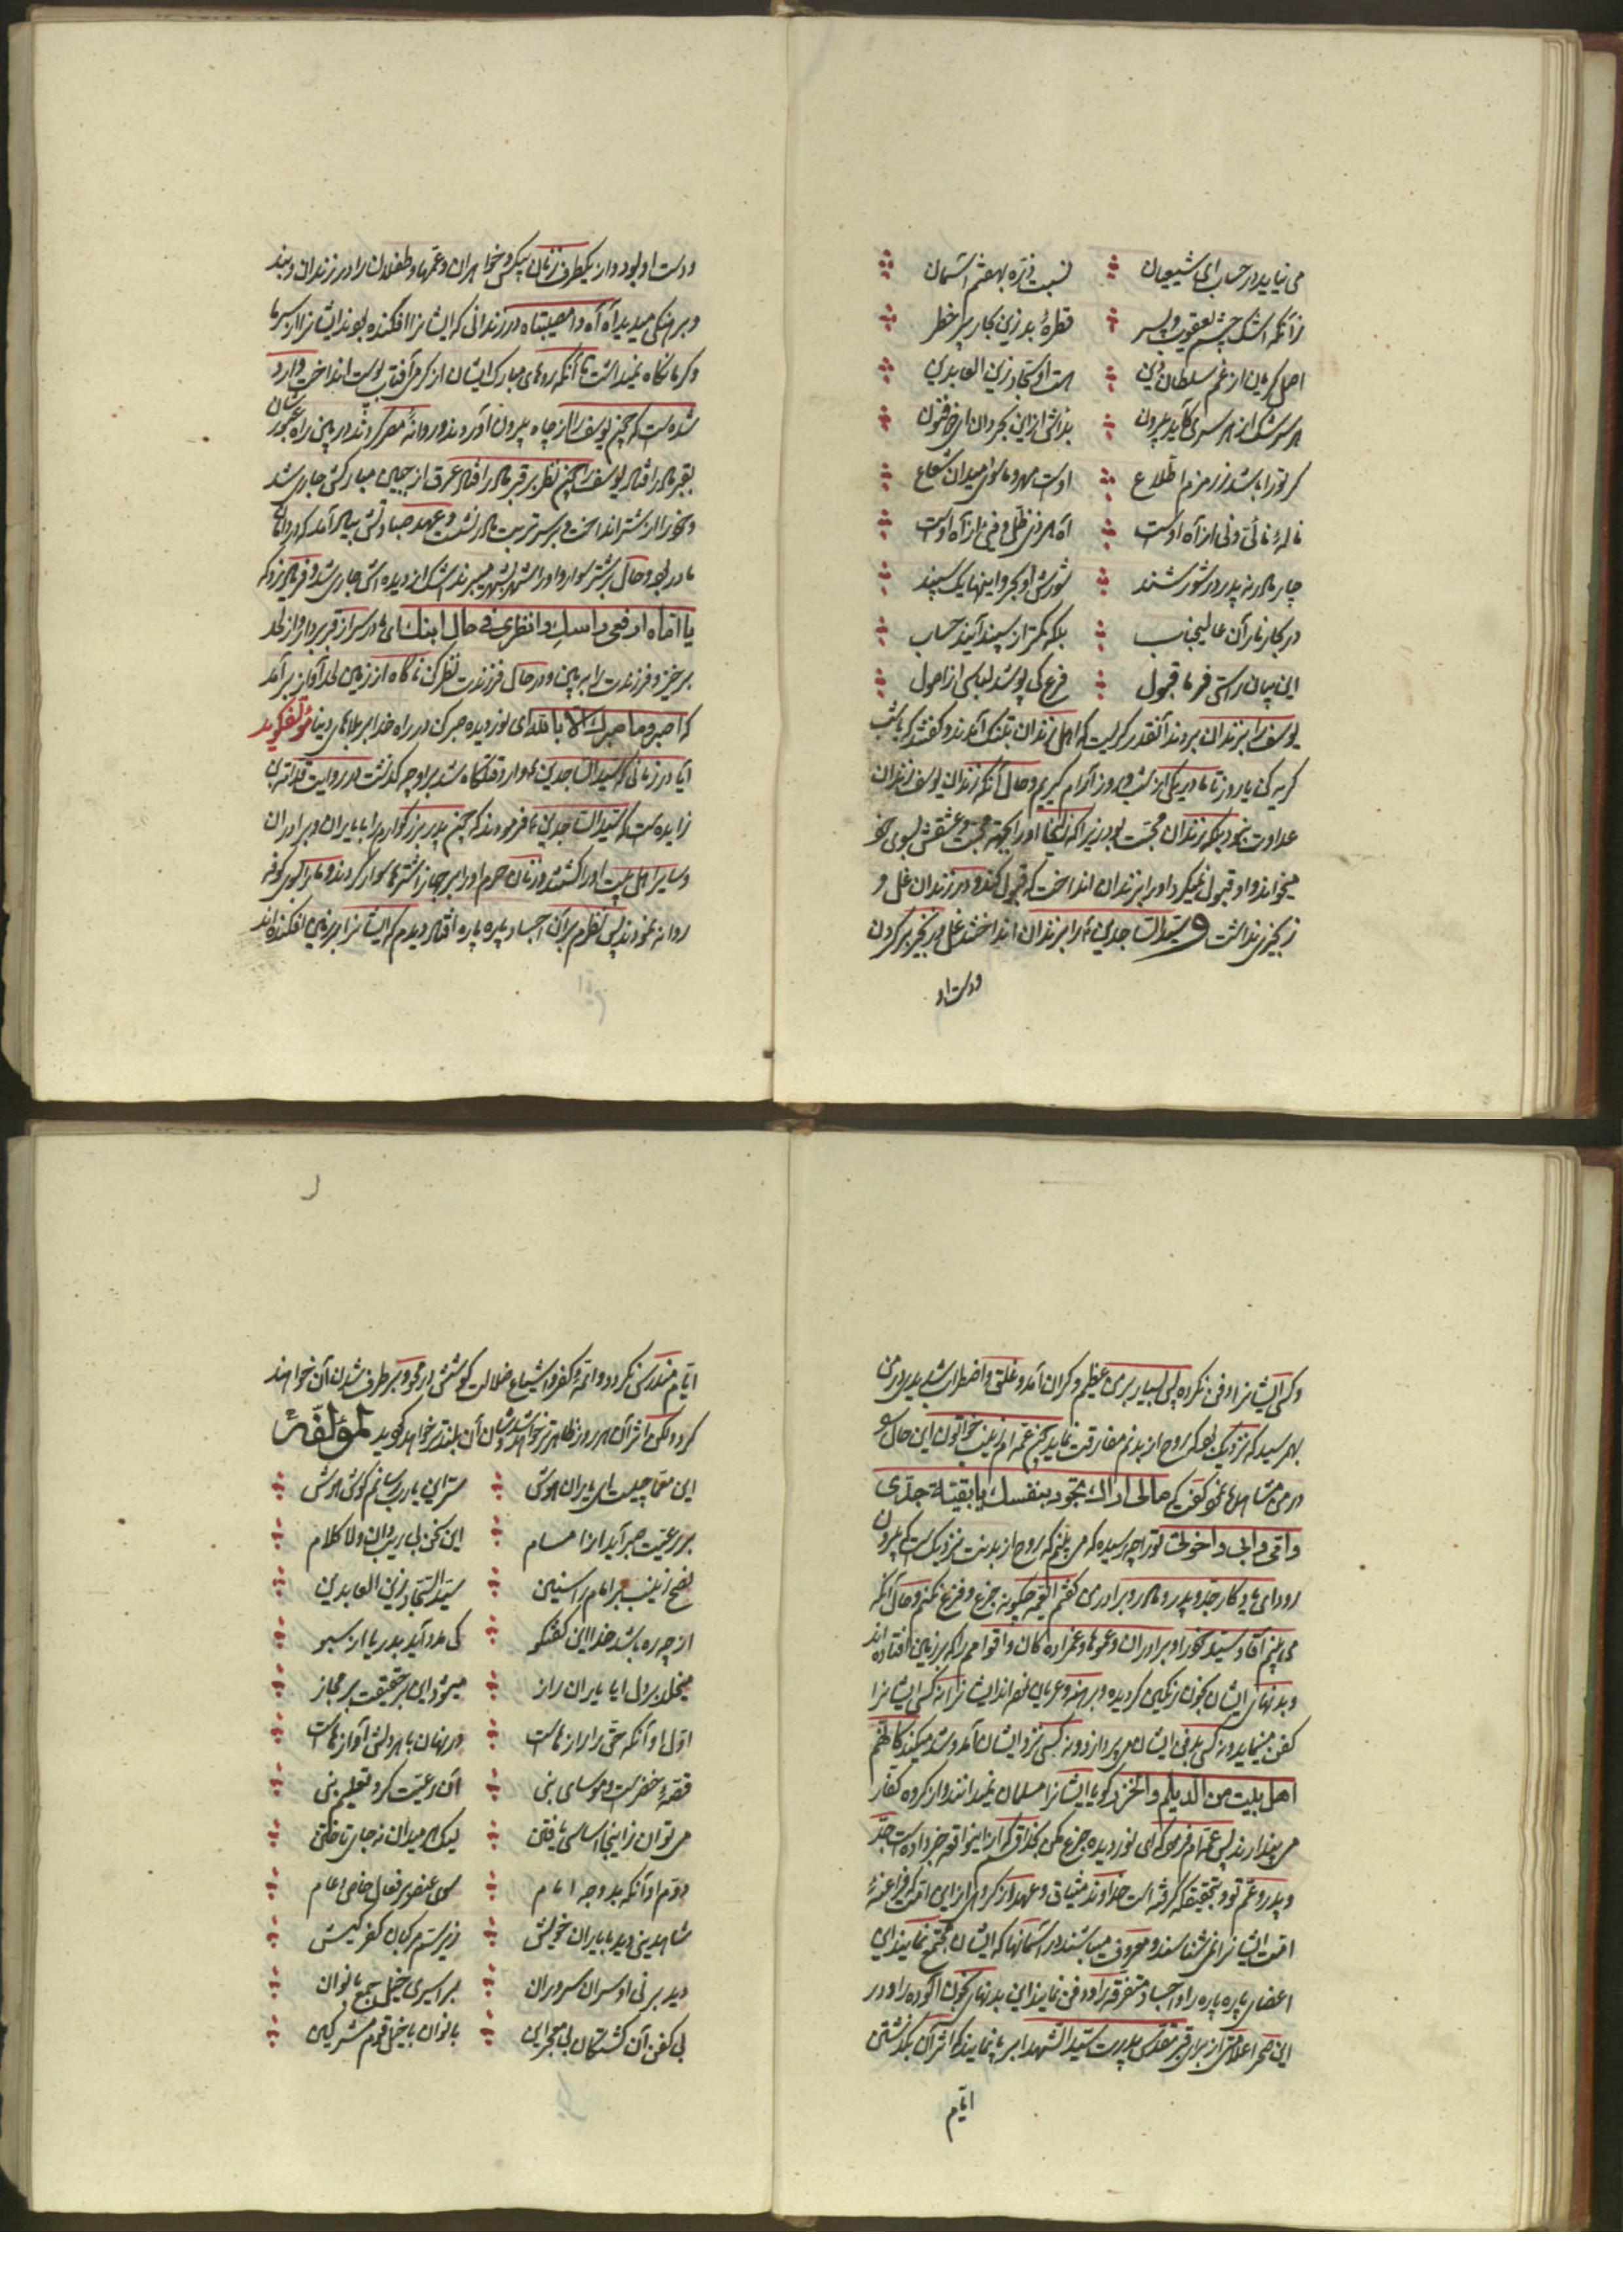 می نیاید در حساب ای شیعیان نسبت ذره بهفتم آسمان
زآنکه اشک چشم یعقوب و پسر قطرهٔ بد زین بحار پر خطر
اصل گریان از غم سلطان دین هست او سجاد زین العابدین
هر سرشک از هر سری کآید برون بد اثر از این بحر دان ای ذو فنون
گر تو را باشد زرمزم اطلاع اوست مهر و ماسوا میدان شعاع
نالهٔ نائی و نی از آه اوست آه هر ذی ظل و فی از آه اوست
چار مادر نه پدر در شور شدند شورش او بحر و اینها یک سپند
در بحار نار آن عالیجناب بلکه کمتر از سپند آیند حساب
این بیان راستی فرما قبول فرع کی پوشد لباسی از اصول
یوسف را بزندان بردند آنقدر گریست که اهل زندان بتنگ آمدند و گفتند که یا شب
گریه کن یا روز تا ما در یکی از شب و روز آرام گیریم و حال آنکه زندان یوسف زندان
عداوت نبود بلکه زندان محبت بود زیرا که زلیخا او را بجهة محبت و عشقش بسوی خود
میخواند و او قبول نمیکرد او را بزندان انداخت که قبول کند و در زندان غل و
زنجیری نداشت و سید الساجدین را بزندان انداختند غل و زنجیر بر گردن
و دست او
و دست او بود و از یکطرف زنان بیکس و خواهران و عمه‌ها و طفلان را در زندان و بند
و برهنگی میدید آه آه وا مصیبتاه در زندانی که ایشانرا افکنده بودند ایشانرا از سرما
و گرما نگاه نمیداشت تا آنکه روهای مبارک ایشان از گرمی آفتاب پوست انداخت وارد
شده‌ست که چون یوسف را از چاه بیرون آوردند و روانهٔ مصر کردند در بین راه عبورشان
بقبر مادر افتاد یوسف را چون نظر بر قبر مادر افتاد عرق از جبین مبارکش جاری شد
و خود را از شتر انداخت و بر سر تربت مادر نشست و عهد صباوتش بیاد آمد که در دامان
مادر بود و حال بر شتر سوار و او را شهر بشهر میبرند اشک از دیده اش جاری شد و فریاد زد که
یا اماه ارفعی راسک وانظری فی حال ابنک ای مادر سر از قبر بردار و از لحد
برخیز و فرزندت را ببین و در حال فرزندت نظر کن ناگاه از زمین لحد آواز برآمد
که اصبر و ما صبرک الا بالله ای نور دیده صبر کن در راه خدا بر بلاهای دنیا مؤلف گوید
آیا در زمانی که سید الساجدین وارد قتلگاه شد بر او چه گذشت در روایت قدامة بن
زایده ست که سید الساجدین فرمودند که چون پدر بزرگوارم را با یاران و برادران
و سایر اهل بیت او را کشتند و زنان حرم او را بر جهاز اشترها سوار کردند و ما را بسوی کوفه
روانه نمودند پس نظرم بر آن اجساد پاره پاره افتاد دیدم که ایشانرا بر زمین افکنده‌اند
و کسی ایشانرا دفن نکرده پس بسیار بر من عظیم و گران آمد و غلق و اضطراب شدید در من
بهم رسید که نزدیک بود که روح از بدنم مفارقت نماید چون عمه ام زینب خواتون این حال را
در من مشاهده نمود گفت که مالی اراک تجود بنفسک یا بقیة جدی
و اقی و ابی و اخوتی تو را چه رسیده که می بینم که روح از بدنت نزدیک است که بیرون
رود ای یادگار جد و پدر و مادر و برادر من گفتم ای عمه چگونه جزع و فزع نکنم و حال آنکه
می بینم آقا و سید خود را و برادران و عموها و عمزاده گان و اقوامم را که بر زمین افتاده اند
و بدنهای ایشان بخون رنگین گردیده و برهنه و عریان مانده‌اند ایشانرا نه کسی ایشانرا
کفن مینماید و نه کسی بدفن ایشان می پردازد و نه کسی نزد ایشان آمد و شد میکند کانهم
اهل بیت من الدیلم والخزر گویا ایشانرا مسلمان نمیدانند و از گروه کفار
می پندارند پس عمه‌ام فرمود که ای نور دیده جزع مکن بخدا قسم که از اینواقعه خبر داده است جد
و پدر و عم تو و بتحقیق که گرفته است خداوند میثاق و عهد از گروهی از این امت که فراعنهٔ
امت ایشانرا نمی‌شناسند و معروف میباشند در آسمانها که ایشان جمع نمایند این
اعضای پاره پاره را و اجساد متفرقه را و دفن نمایند این بدنهای بخون آلوده را و در
این صحرا علامتی از برای قبر مقدس پدرت سید الشهدا بر پا نمایند که اثر آن بگذشتن
ایام
ایام مندرس نگردد و ائمهٔ کفر و اشیاع ضلالت کوشش در محو و بر طرف شدن آن خواهند
کرد ولکن اثر آن هر روز ظاهرتر خواهد شد و شان آن بلندتر خواهد گردید لمؤلفه
این معما چیست ای یاران هوش سر این یا رب رسانم گوش هوش
بر رعیت صبر آید از امام این سخن بی ریب دان و لا کلام
نصح زینب بر امام راستین سید السجاد زین العابدین
از چه ره باشد خدا این گفتگو کی مدد آید بدریا از سبو
میخلد بر دل ایا یاران راز میشود این بر حقیقت بر مجاز
اول او آنکه حق را رازهاست در نهان با هر دلش آوازهاست
قصهٔ خضرست و موسای نبی آن رعیت کرد تعلیم نبی
می توان زاینجا اساسی یافتن لیک هر میدان نه جای تاختن
دوم او آنکه بد وجه امام سوی عنصر فعال خاص و عام
شاه دین دید با یاران خویش زیر سم مرکبان کفر کیش
دید بر نی او سران سروران بر اسیری خیل جمع بانوان
بی کفن آن کشتگان بی معین بانوان با خیل قوم مشرکین